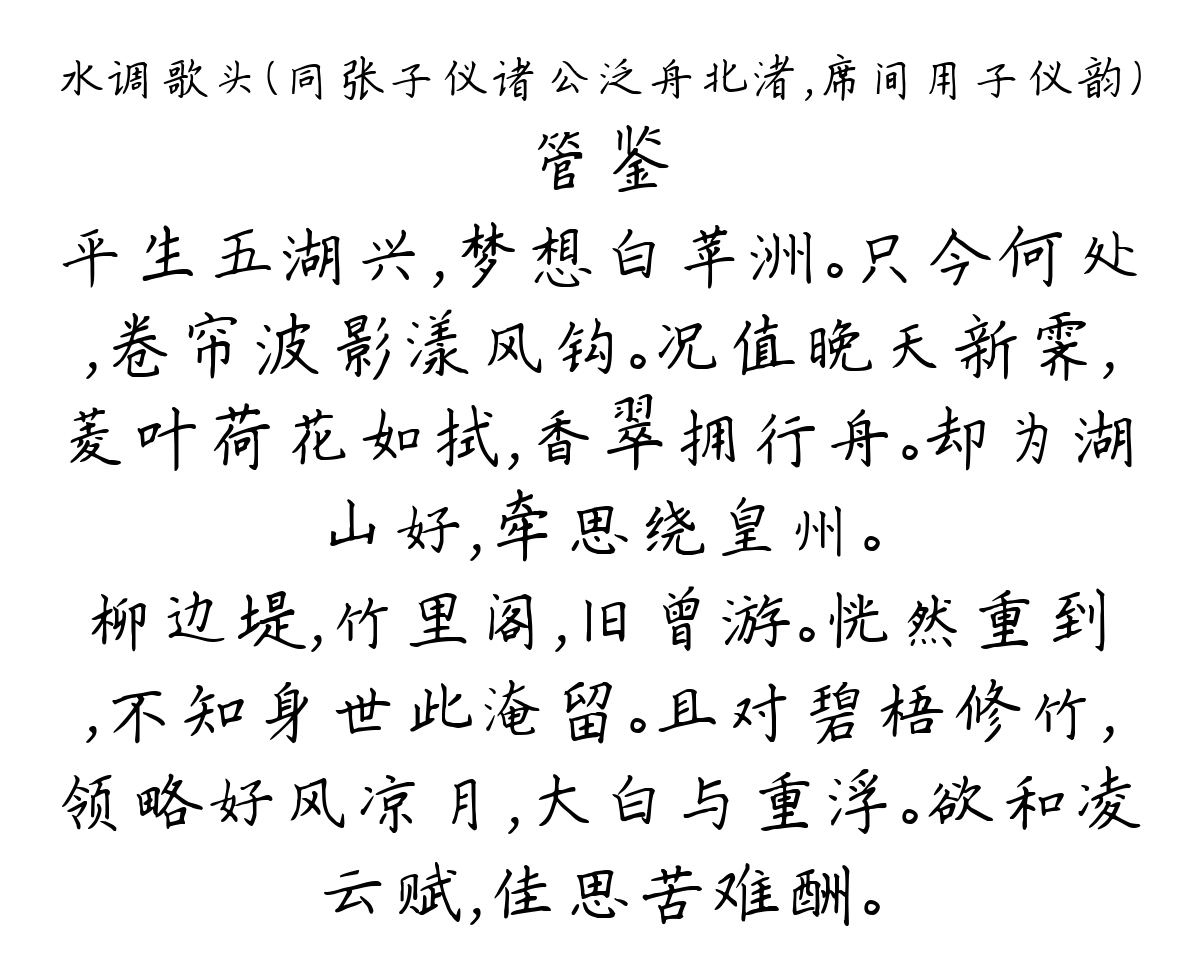 水调歌头(同张子仪诸公泛舟北渚,席间用子仪韵)
管鉴
平生五湖兴,梦想白苹洲。只今何处
,卷帘波影漾风钩。况值晚天新霁,
菱叶荷花如拭,香翠拥行舟。却为湖
山好,牵思绕皇州。
柳边堤,竹里阁,旧曾游。恍然重到
,不知身世此淹留。且对碧梧修竹,
领略好风凉月,大白与重浮。欲和凌
云赋,佳思苦难酬。